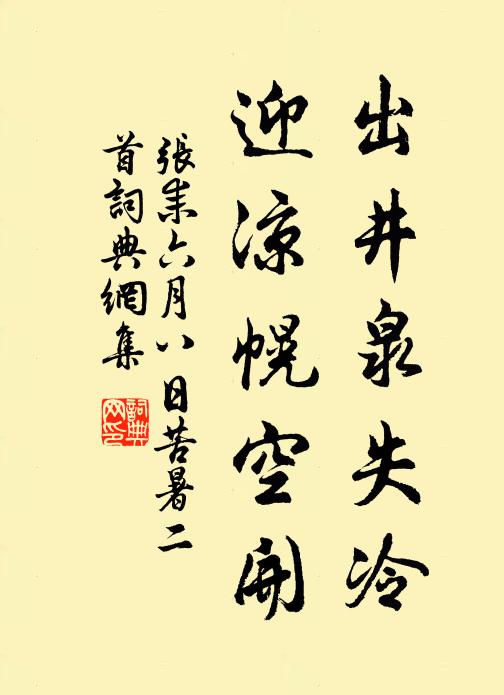 出井泉失冷
迎涼幌空開
張耒六月八日苦暑二
首詞典網集
詞典
网印